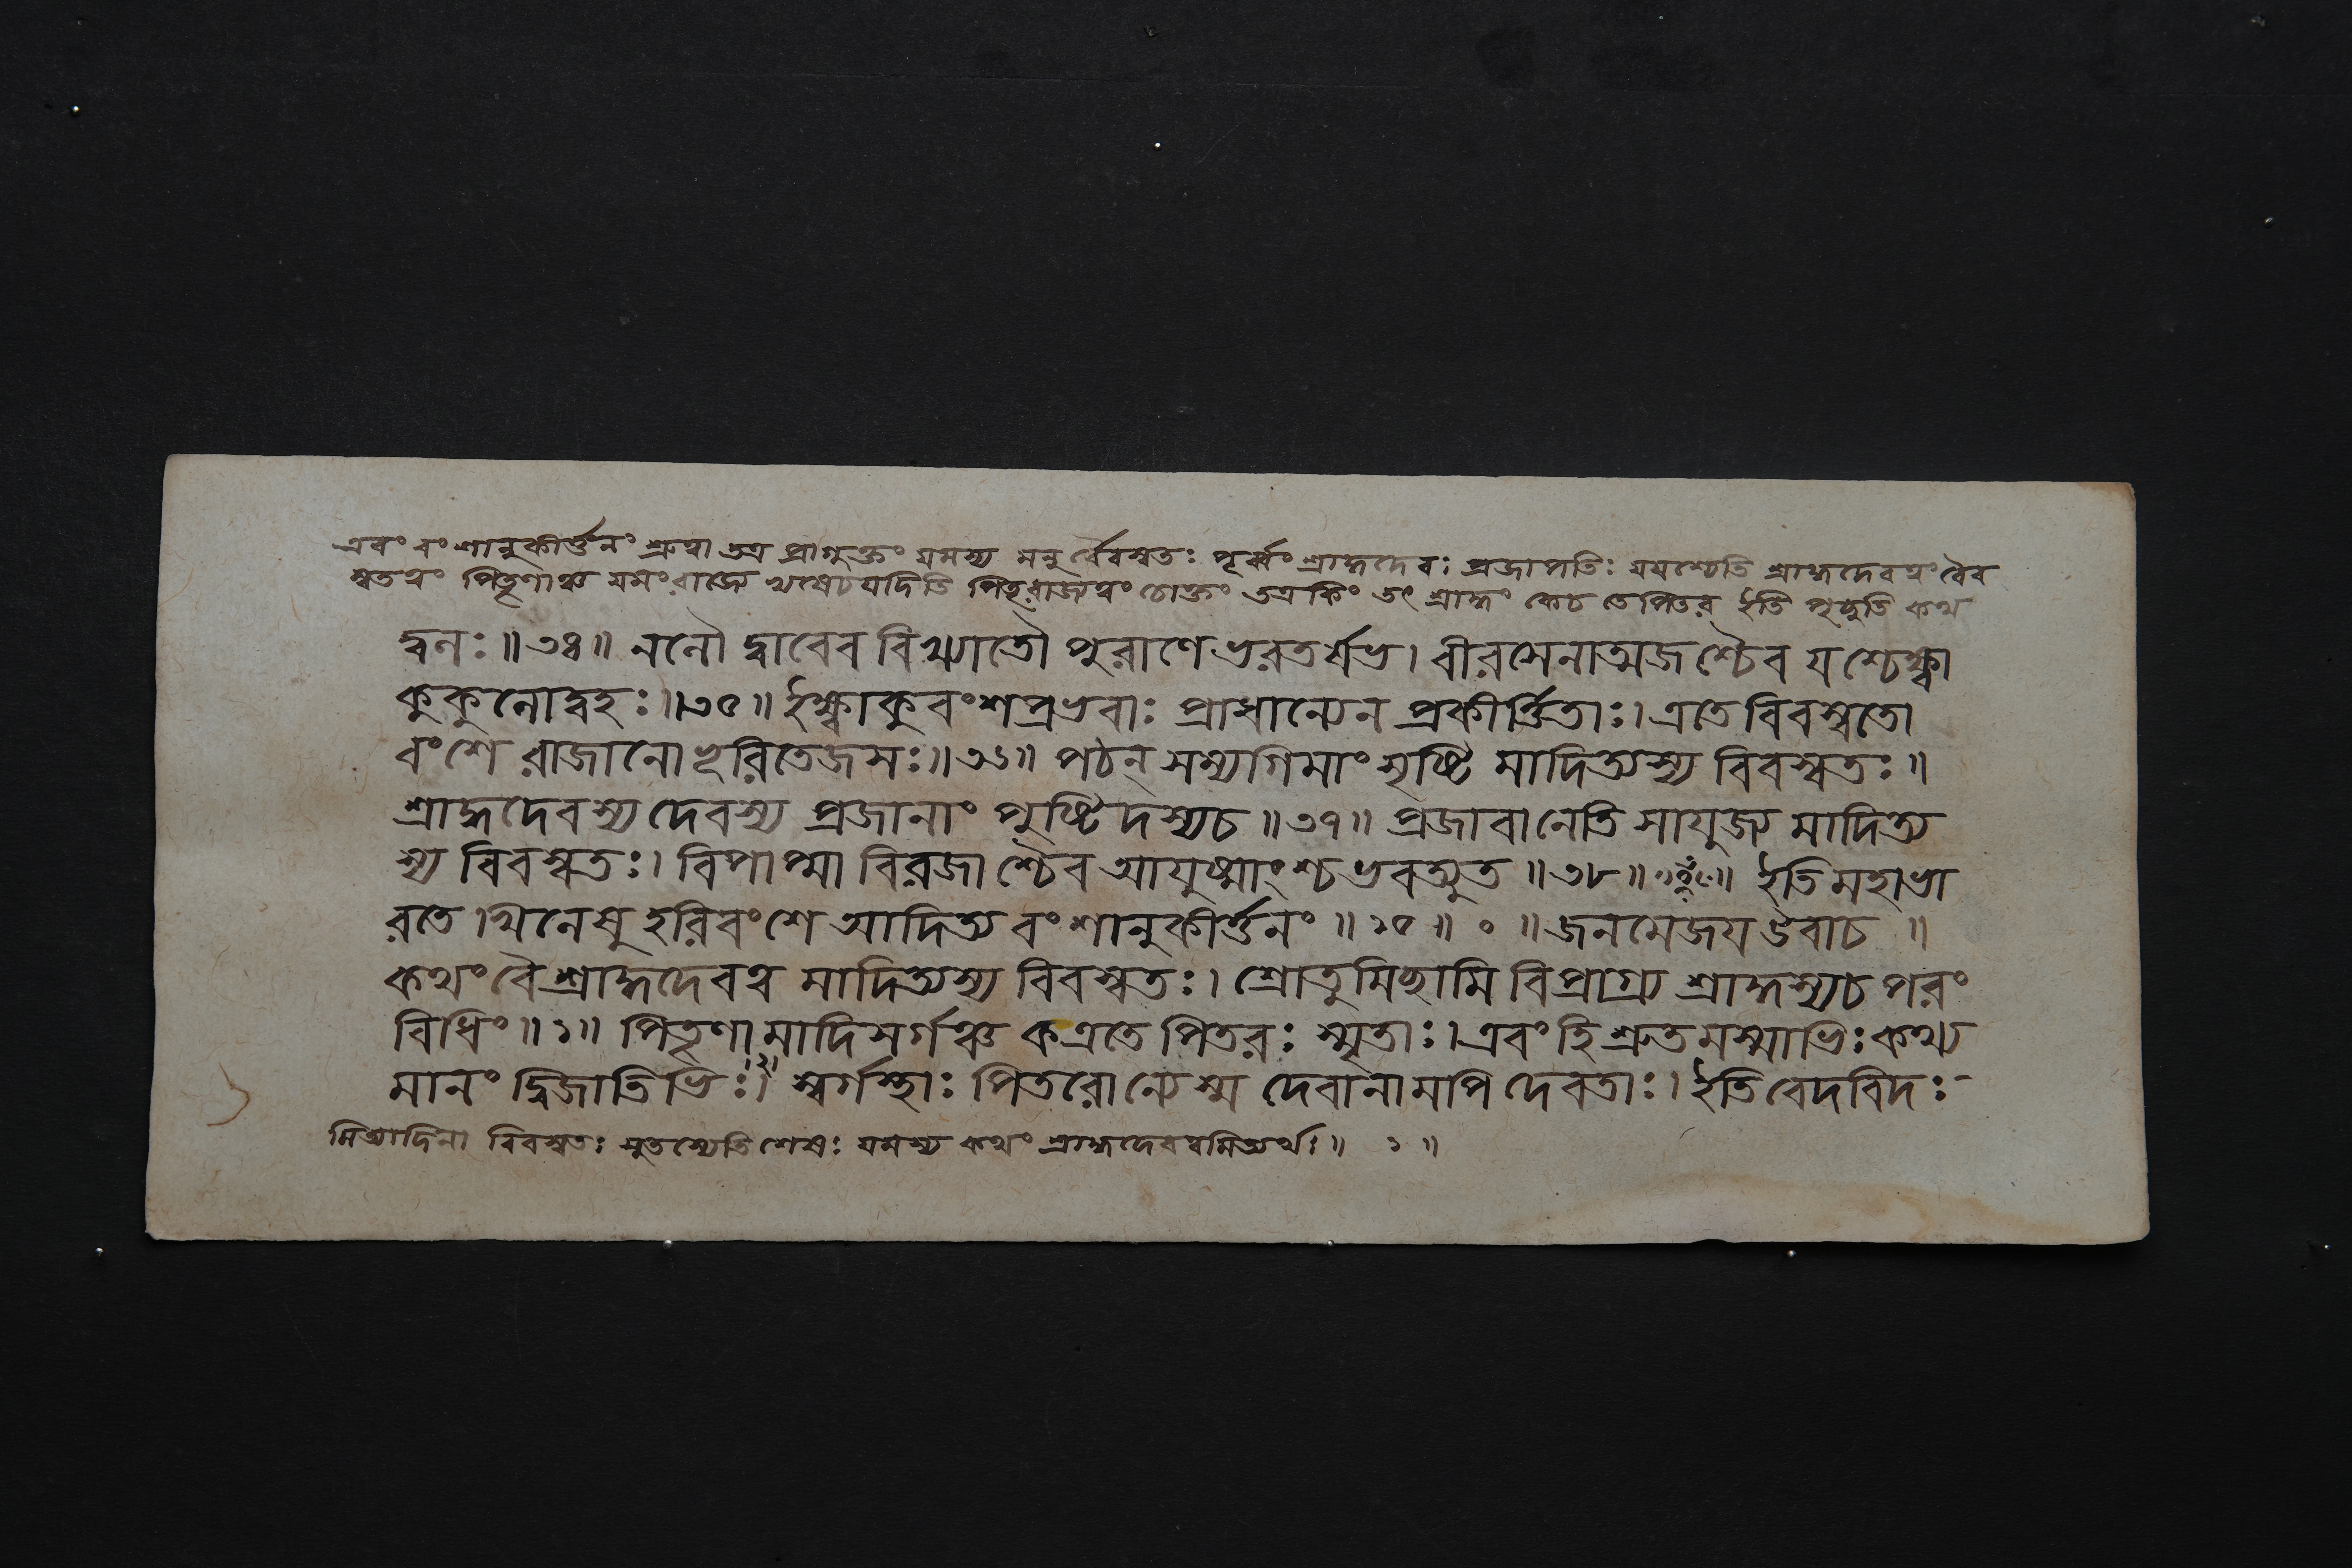 এবং বংশানুকীর্ত্তনং শ্রুত্বা তত্র প্রাগুক্তং যমস্য মনুর্ব্বৈবস্বতঃ পূর্ব্বং শ্রাদ্ধদেবঃ প্রজাপতিঃ যমশ্চেতি শ্রাদ্ধদেবত্বং বৈব
স্বতত্বং পিতৄণাঞ্চ যমং রাজ্যে পিতৃরাজ্যত্বং চোক্তং তত্র কিং তৎ শ্রাদ্ধং কেচ তে পিতর ইতি পৃচ্ছতি কথ
দ্বনঃ॥৩৪॥ নলৌ দ্বাবেব বিখ্যাতৌ পুরাণে ভরতর্ষভ। বীরসেনাত্মজশ্চৈব যশ্চেক্ষ্বা
কুকুলোদ্বহঃ॥৩৫॥ ইক্ষ্বাকুবংশপ্রভবাঃ প্রাধান্যেন প্রকীর্ত্তিতাঃ। এতে বিবস্বতো
বংশে রাজানো ভূরিতেজসঃ॥৩৬॥ পঠন্ সম্যগিমাং সৃষ্টি মাদিত্যস্য বিবস্বতঃ॥
শ্রাদ্ধদেবস্য দেবস্য প্রজানাং পুষ্টিদস্যচ॥৩৭॥ প্রজাবানেতি সাযুজ্য মাদিত্য
স্য বিবস্বতঃ। বিপাপ্মা বিরজাশ্চৈব আয়ুষ্মাংশ্চ ভবত্যুত॥৩৮॥ ইতি মহাভা
রতে খিলেষু হরিবংশে আদিত্য বংশানুকীর্ত্তনং॥১৫॥ ০ ॥জনমেজয় উবাচ ॥
কথং বৈ শ্রাদ্ধদেবত্ব মাদিত্যস্য বিবস্বতঃ। শ্রোতুমিচ্ছামি বিপ্রাগ্র্য শ্রাদ্ধস্যচ পরং
বিধিং॥১॥ পিতৄণামাদিসর্গঞ্চ ক এতে পিতরঃ স্মৃতাঃ। এবং হি শ্রুতমস্মাভিঃ কথ্য
মানং দ্বিজাতিভিঃ।২। স্বর্গস্থাঃ পিতরোন্যেস্ম দেবানামপি দেবতাঃ। ইতি বেদবিদঃ
মিত্যাদিনা বিবস্বতঃ সুতস্যেতি শেষঃ যমস্য কথং শ্রাদ্ধদেবত্বমিত্যর্থঃ॥ ১ ॥